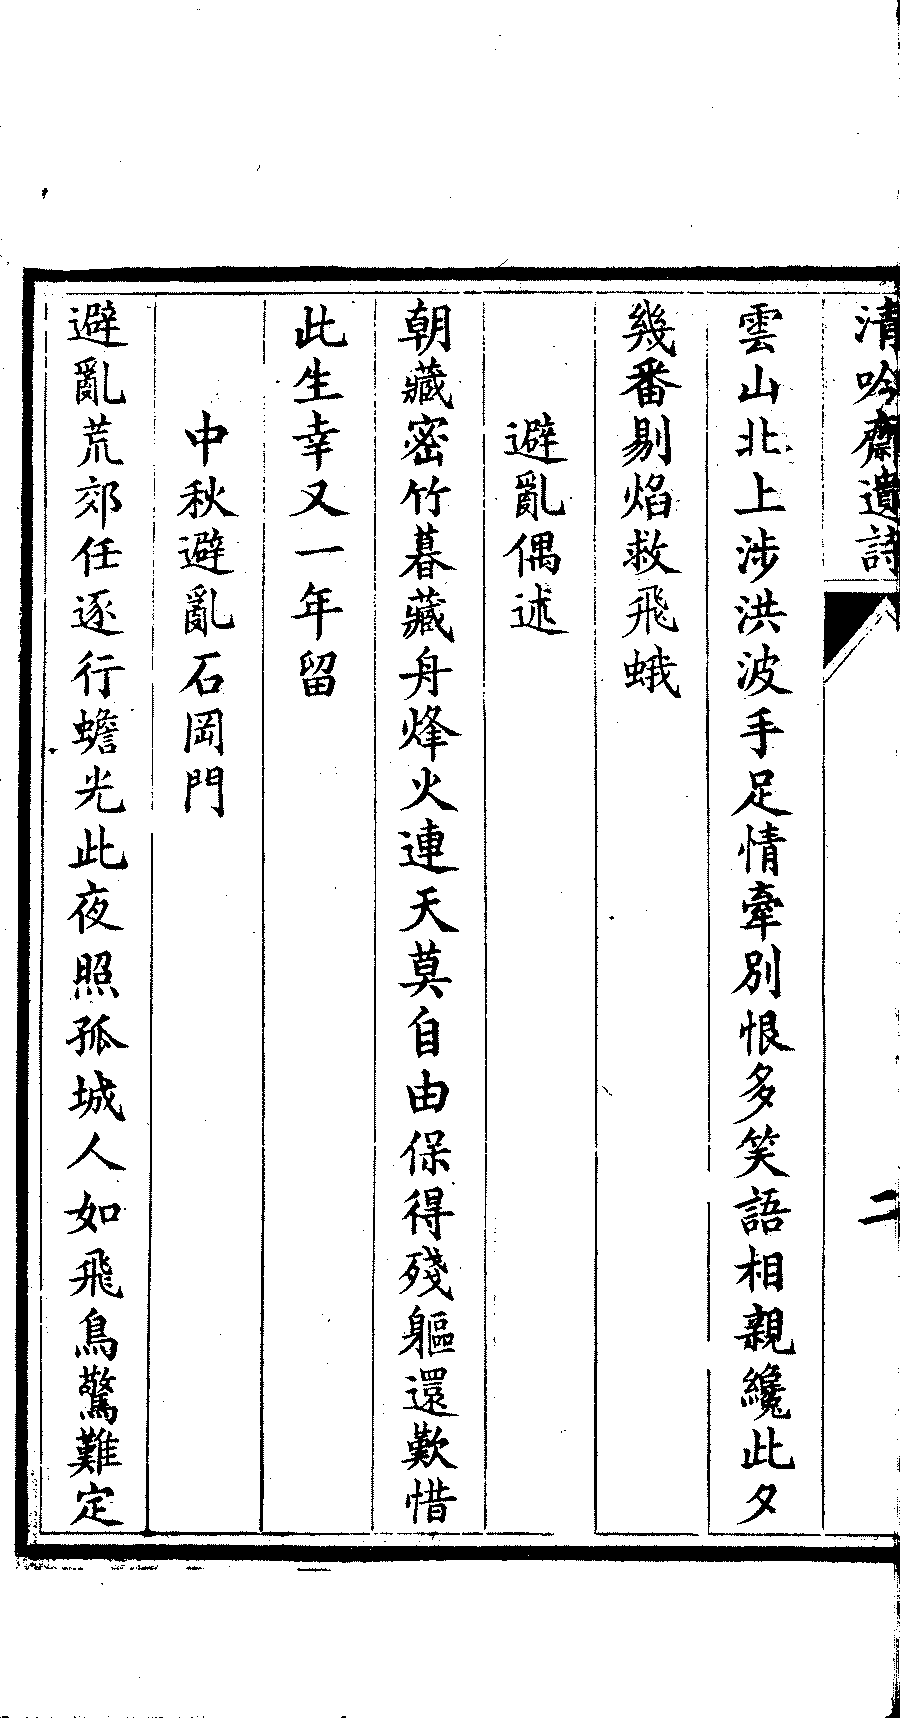 清吟齋遺詩
二
雲山北上涉洪波手足情牽別恨多笑語相親纔此夕
幾番剔焰救飛蛾
避亂偶述
朝藏密竹暮藏舟烽火連天莫自由保得殘軀還歎惜
此生幸又一年留
中秋避亂石岡門
避亂荒郊任逐行蟾光此夜照孤城人如飛鳥驚難定